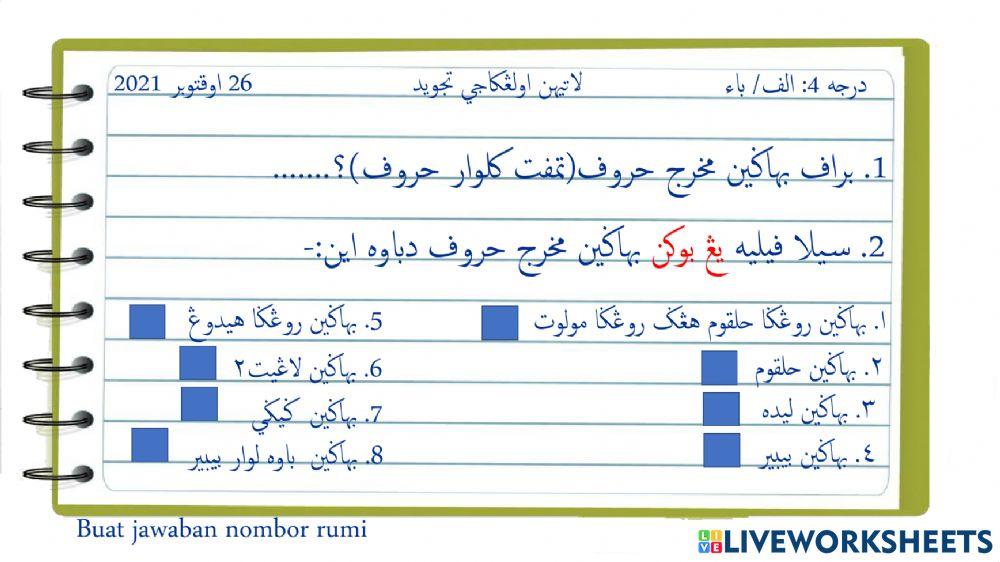 درجه 4: الف/ باء لاتيهن اولڠكاجي تجويد 26 اوقتوبر 2021
1. براف بهاݢين مخرج حروف(تمفت كلوار حروف)؟.......
2. سيلا فيليه يڠ بوكن بهاݢين مخرج حروف دباوه اين:-
١. بهاݢين روڠݢا حلقوم هڠݢ روڠݢا مولوت
5. بهاݢين روڠݢا هيدوڠ
٢. بهاݢين حلقوم
6. بهاݢين لاڠيت٢
٣. بهاݢين ليده
7. بهاݢين ݢيݢي
٤. بهاݢين بيبير
8. بهاݢين باوه لوار بيبير
Buat jawaban nombor rumi
LIVEWORKSHEETS